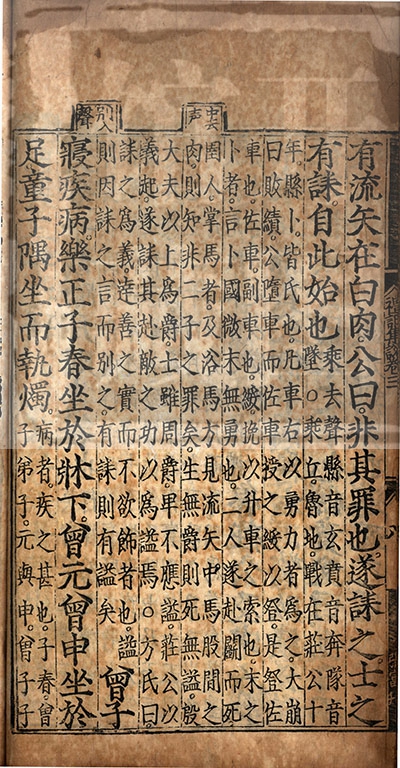 中去声
別入聲
有流矢在白肉公曰非其罪也遂誄之士之
有誄自此始也
乘去聲縣音玄賁音奔隊音
墜○乘丘魯地戰在莊公十
年縣卜皆氏也凡車右以勇力者為之大崩
曰敗績公墮車而佐車授之綏以登是登佐
車也佐車副車也綏挽以升車之索也末之
卜者言卜國微末無勇也二人遂赴鬭而死
圉人掌馬者及浴馬方見流矢中馬股間之
肉則知非二子之罪矣生無爵則死無謚殷
大夫以上為爵士雖周爵卑不應謚莊公以
義起遂誄其赴敵之功以為謚焉○方氏曰
誄之為義達善之實而不欲飾者也謚
則因誄之言而別之有誄則有謚矣
曾子
寢疾病樂正子春坐於牀下曾元曾申坐於
足童子隅坐而執燭
病者疾之甚也子春曾
子弟子元與申曾子子